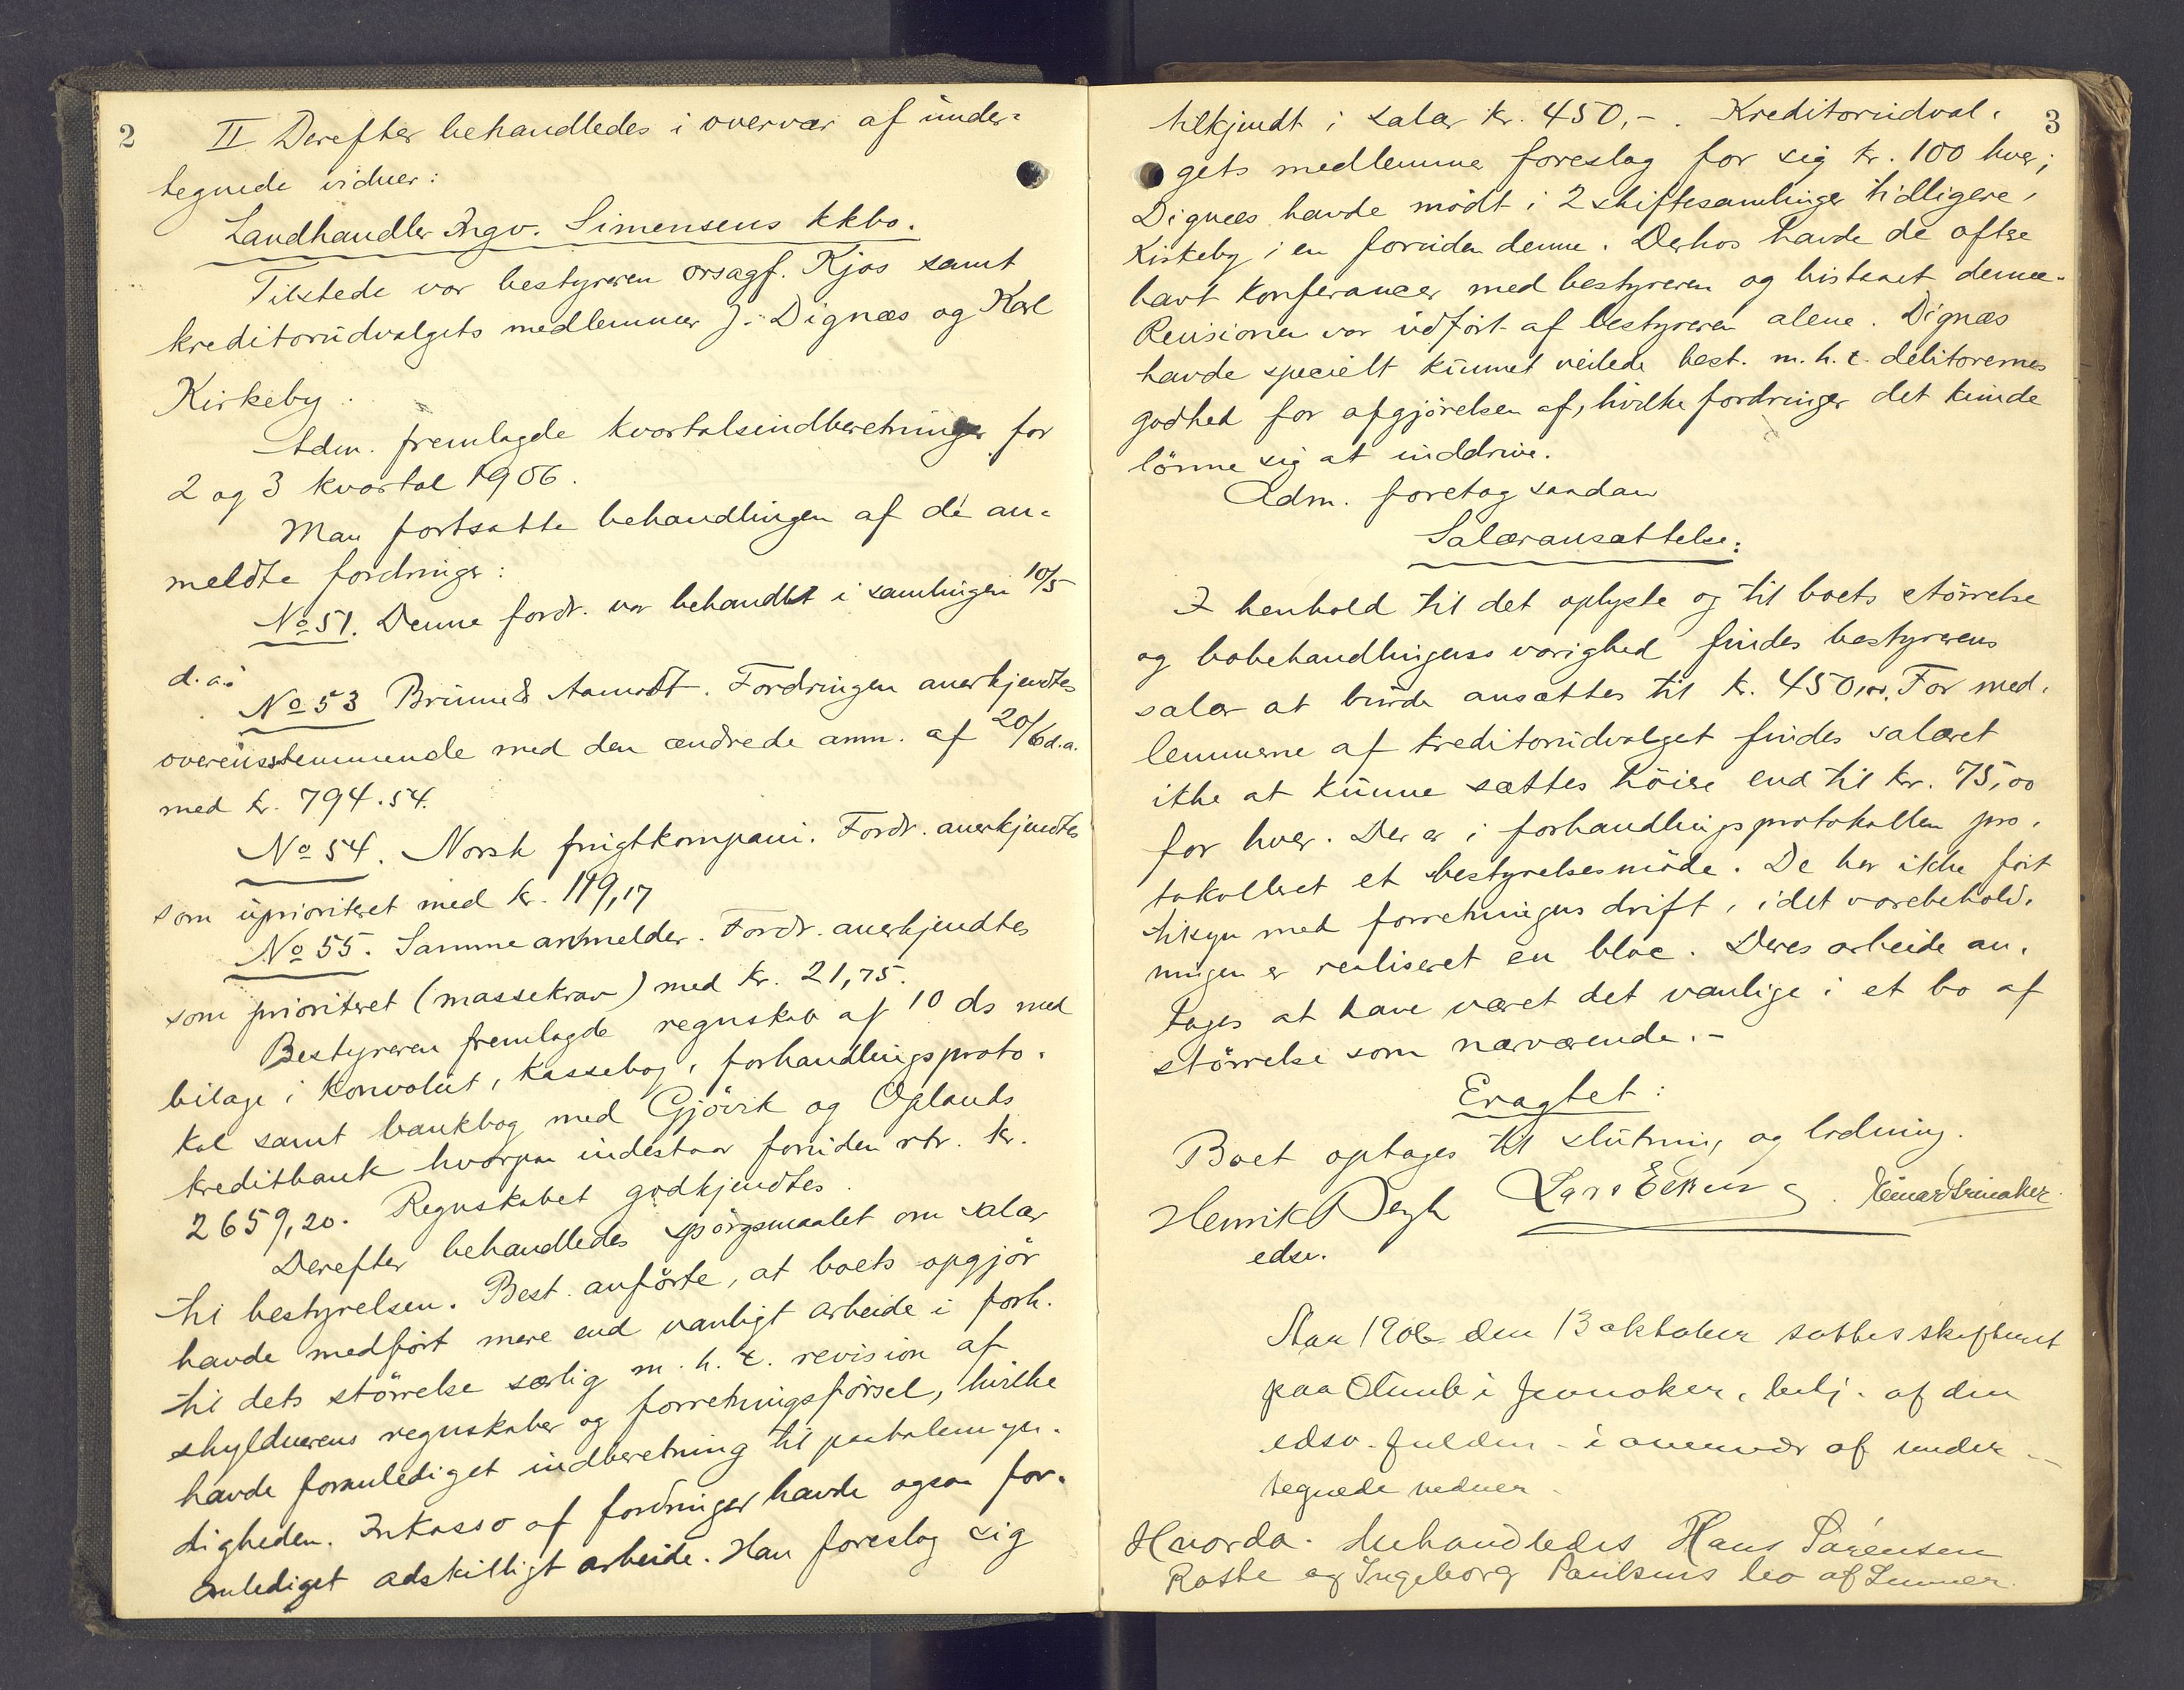 2
II Derefter behandledes i overvær af under-
tegnede vidner:
Landhandler Ingv. Simensens kkbo.
Tilstede var bestyreren orsagf. Kjos samt
kreditorudvalgets medlemmer J. Dignæs og Karl
Kirkeby.
Adm. fremlagde kvartalsindberetninger for
2 og 3 kvartal 1906.
Man fortsatte behandlingen af de an-
meldte fordringer:
No 51. Denne fordr. var behandlet i samlingen 10/5
d.a.
No 53 Brunn & Aamodt. Fordringen anerkjendtes
overensstemmende med den ændrede anm. af 20/6 d.a.
med kr. 794.54.
No 54. Norsk frugtkompani. Fordr. anerkjendtes
som uprioriteret med kr. 119,17
No 55. Samme anmelder. Fordr. anerkjendtes
som prioriteret (massekrav) med kr. 21,75.
Bestyreren fremlagde regnskab af 10 ds med
bilage i konvolut, kassebog, forhandlingsproto-
kol samt bankbog med Gjøvik og Oplands
kreditbank hvorpaa indestaar foruden rtr. kr.
2659,20. Regnskabet godkjendtes.
Derefter behandledes spørgsmaalet om salær
til bestyrelsen. Best. anførte, at boets opgjør
havde medført mere end vanligt arbeide i forh.
til dets størrelse særlig m.h.t. revision af
skyldnerens regnskaber og forretningsførsel, hvilke
havde foranlediget indberetning til paatalemyn-
digheden. Inkasso af fordringer havde ogsaa for-
anlediget adskilligt arbeide. Han foreslog sig
3
tilkjendt i salær kr. 450,-. Kreditorudval-
gets medlemmer foreslog for sig kr. 100 hver;
Dignæs havde mødt i 2 skiftesamlinger tidligere,
Kirkeby i en foruden denne. Derhos havde de oftere
havt konferancer med bestyreren og bistaaet denne.
Revisionen var udført af bestyreren alene. Dignæs
havde specielt kunnet veilede best. m.h.t. debitorernes
godhed for afgjørelsen af, hvilke fordringer det kunde
lønne sig at inddrive.
Adm. foretog saadan
Salæransættelse:
I henhold til det oplyste og til boets størrelse
og bobehandlingens varighed findes bestyrerens
salær at burde ansættes til kr. 450,00. For med-
lemmerne af kreditorudvalget findes salæret
ikke at kunne sættes høiere end til kr. 75,00
for hver. Der er i forhandlingsprotokollen pro-
tokolleret et bestyrelsesmøde. De har ikke ført
tilsyn med forretningens drift, idet varebehold-
ningen er realiseret en bloc. Deres arbeide an-
tages at have været det vanlige i et bo af
størrelse som nærværende.-
Eragtet:
Boet optages til slutning og lodning.
Henrik Degh Lars Einar
edsv.
Aar 1906 den 13 oktober sattes skifteret
paa i Jevnaker, betj. af den
edsv. fuldm. i overvær af under-
tegnede vidner.
Hvorda. behandledes Hans Sørensen
Roste og Ingeborg Paulsens bo af Lunner.